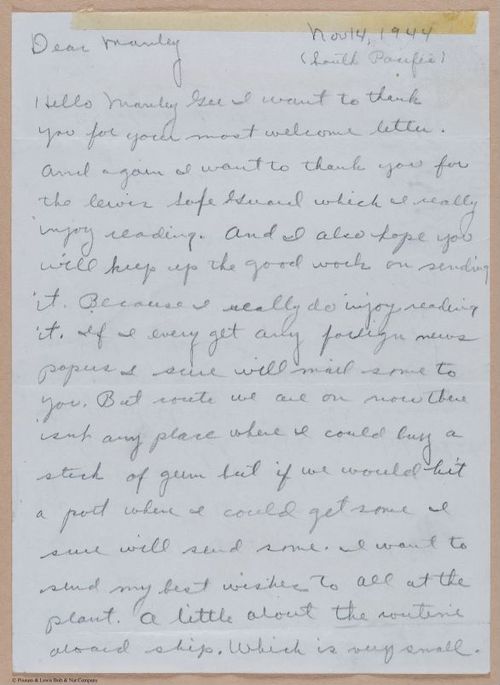 Nov 14, 1944
Dear Manley
(South Pacific)
Hello Manley Gee I want to thank
you for your most welcome letter.
And again I want to thank you for
the lewis Safe Guard which I really
injoy reading. And I also hope you
will keep up the good work on sending
it. Because I really do injoy reading
it. If I every get any foriegn news
papers I sure will mail some to
you. But route we are on now there
isnt any place where I could buy a
stick of gum but if we would hit
a port where I could get some I
sure will send some. I want to
send my best wishes to all at the
plant. A little about the routine
aboard ship. Which is very small.
© Penuen & Lewis Bolt & Nut Company